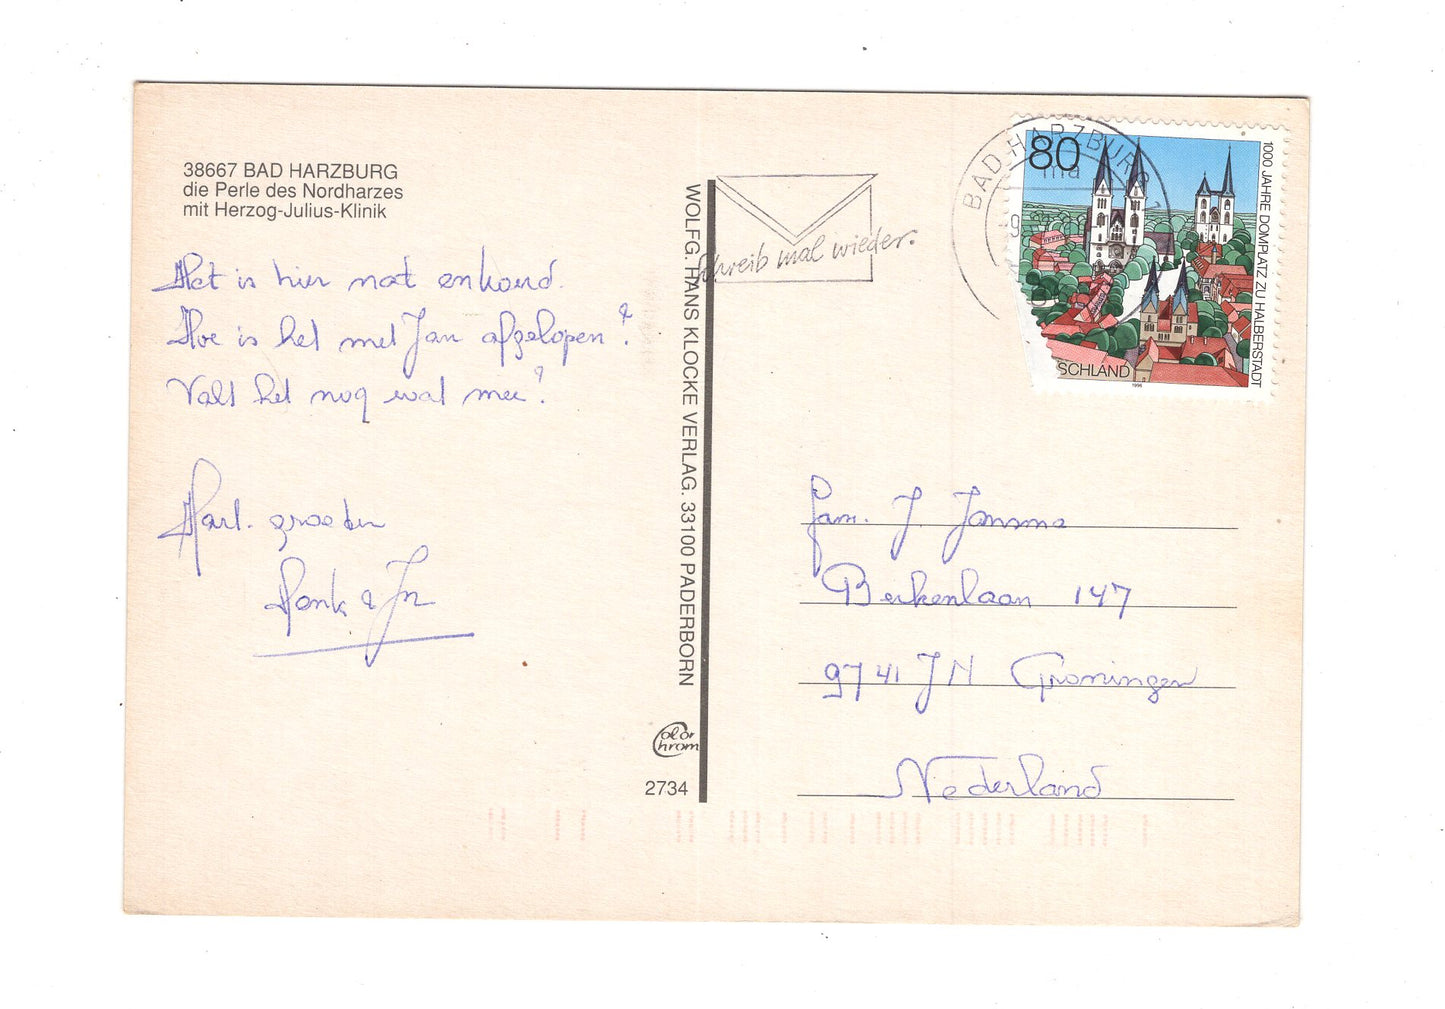 38667 BAD HARZBURG
die Perle des Nordharzes
mit Herzog-Julius-Klinik
Het is hier nat en koud.
Hoe is het met Jan afgelopen?
Valt het nog wat mee?
Hart. groeten
Henk &
WOLFG. HANS KLOCKE VERLAG. 33100 PADERBORN
Color
Chrom
2734
Schreib mal wieder.
BAD HARZBURG 1
80
1000 JAHRE DOMPLATZ ZU HALBERSTADT
SCHLAND
1996
fam. J. Jansma
Berkenlaan 147
9741 JN Groningen
Nederland